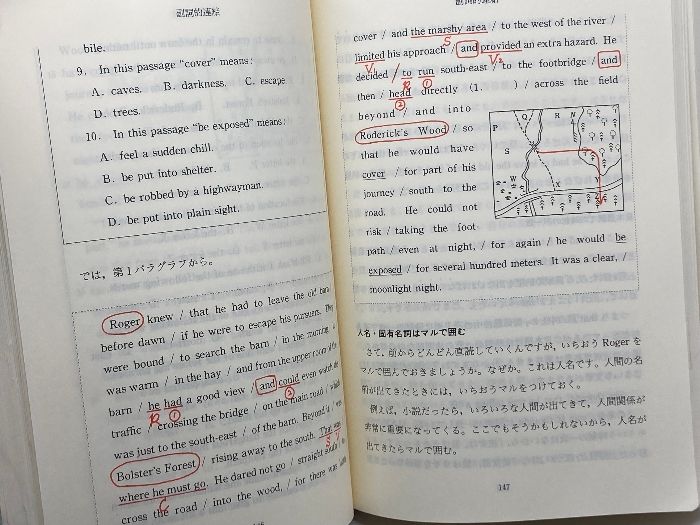 副詞的連結
bile.
9. In this passage "cover" means:
A. caves. B. darkness. C. escape.
D. trees.
10. In this passage "be exposed" means:
A. feel a sudden chill.
B. be put into shelter.
C. be robbed by a highwayman.
D. be put into plain sight.
では，第1パラグラフから。
Roger knew / that he had to leave the old barn
before dawn / if he were to escape his pursuers. They
were bound / to search the barn / in the morning.
was warm / in the hay / and from the upper room of the
barn / he had a good view / and could even watch the
R ① ②
traffic / crossing the bridge / on the main road / which
was just to the south-east / of the barn. Beyond it / was
Bolster's Forest / rising away to the south. That was
S V
where he must go. He dared not go / straight south / to
C
cross the road / into the wood, / for there was
cover / and the marshy area / to the west of the river /
S
limited his approach / and provided an extra hazard. He
V1 V2
decided / to run south-east / to the footbridge / and
R ①
then / head directly (1. ) / across the field
②
beyond / and into
Roderick's Wood / so
that he would have
cover / for part of his
journey / south to the
road. He could not
risk / taking the foot-
path / even at night, / for again / he would be
exposed / for several hundred meters. It was a clear, /
moonlight night.
P Q R N
S
W X Y
人名・固有名詞はマルで囲む
さて，前からどんどん直読していくんですが，いちおう Roger を
マルで囲んでおきましょうか。なぜか。これは人名です。人間の名
前が出てきたときには，いちおうマルをつけておく。
例えば，小説だったら，いろいろな人間が出てきて，人間関係が
非常に重要になってくる。ここでもそうかもしれないから，人名が
出てきたらマルで囲む。
147